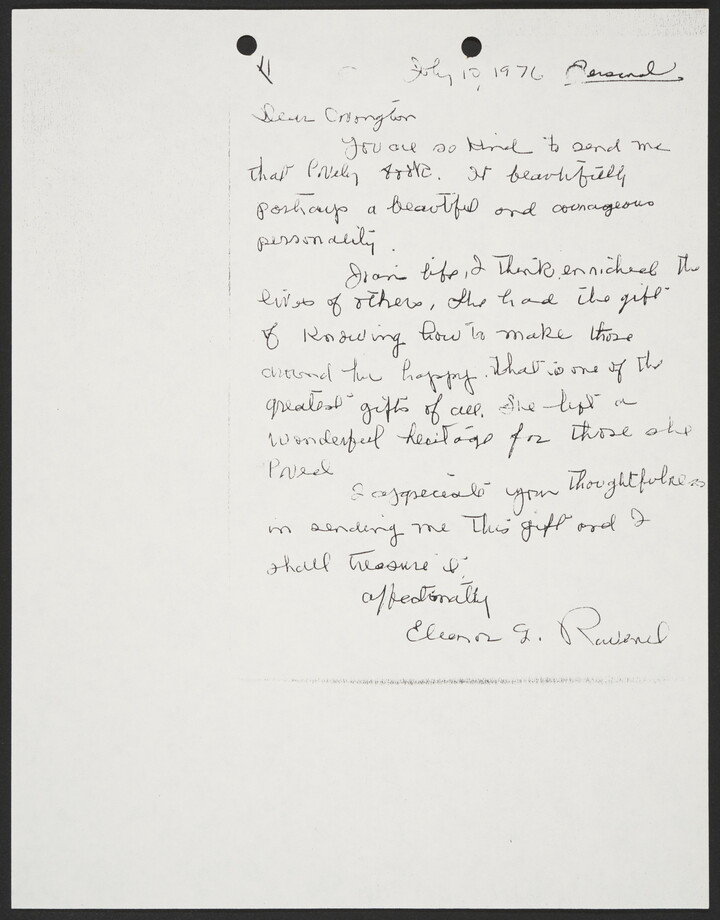 July 10, 1976 Personal
Dear Covington
You are so kind to send me
that lovely book. It beautifully
portrays a beautiful and courageous
personality.
life, I think, enriched the
lives of others, She had the gift
of knowing how to make those
around her happy. That is one of the
greatest gifts of all. She left a
wonderful heritage for those she
loved
I appreciate your thoughtfulness
in sending me this gift and I
shall treasure it.
affectionately
Eleanor G. Ravenel